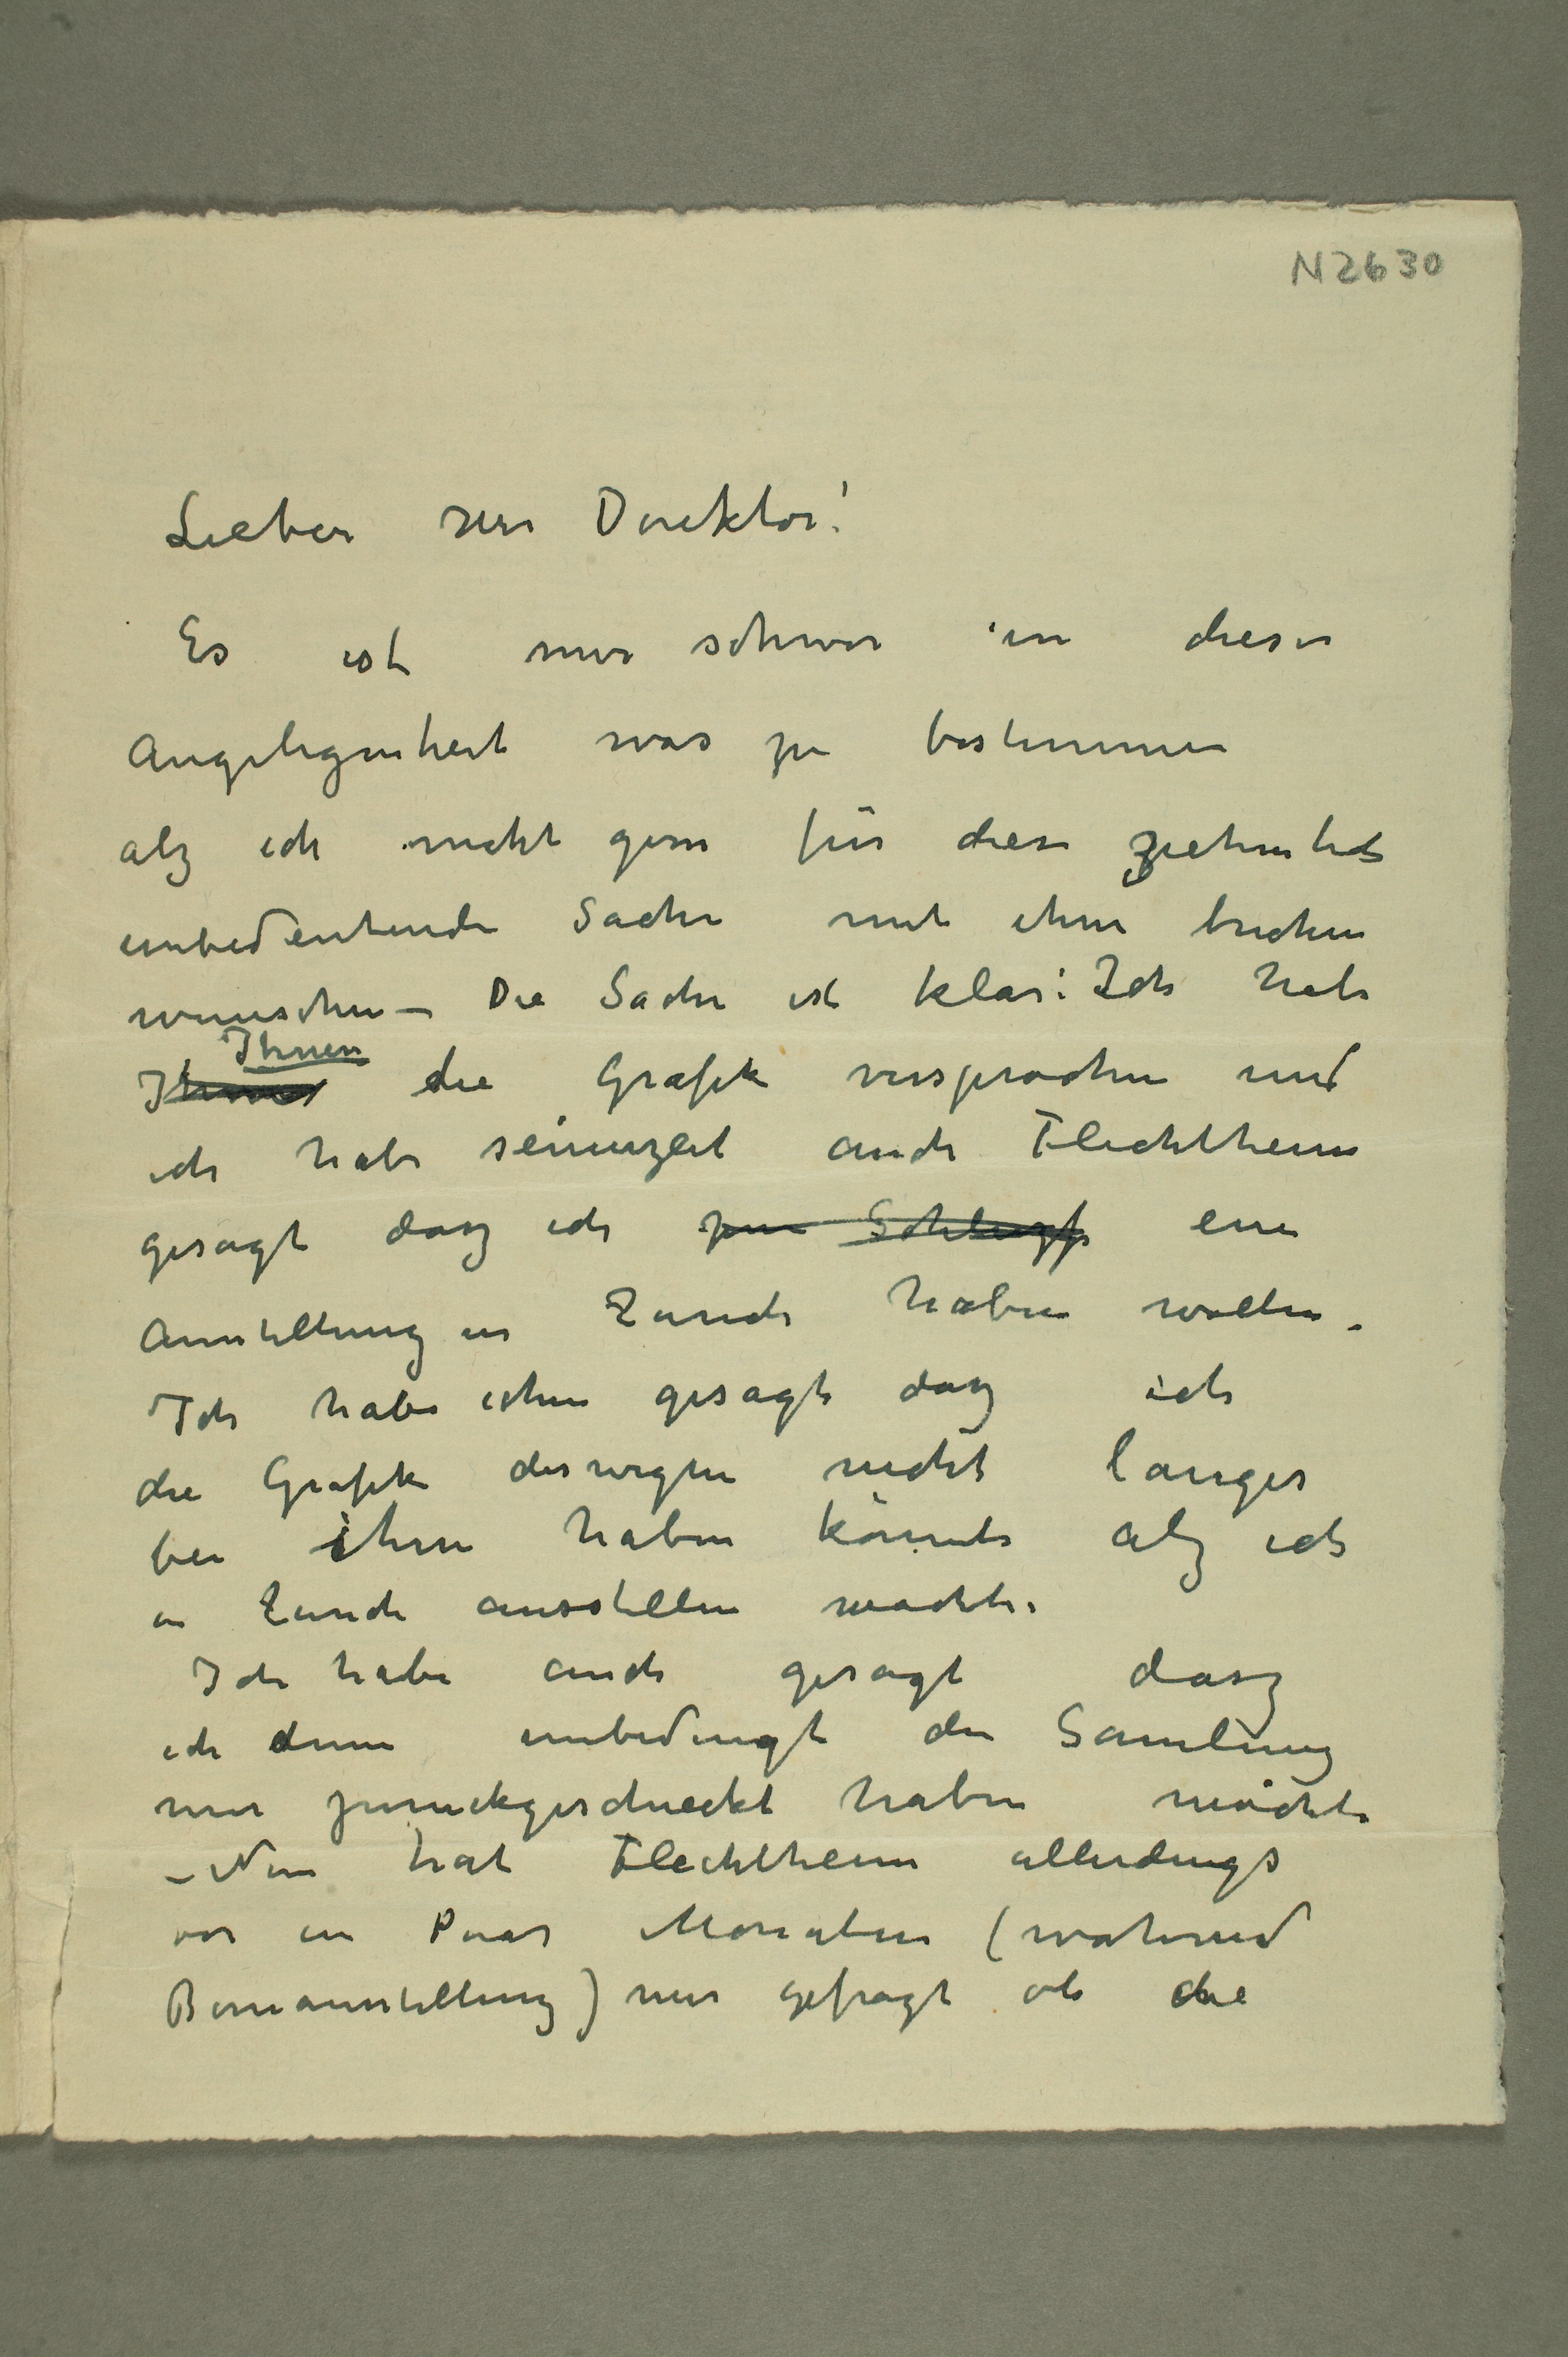 N2630
Lieber Herr Direktor!
Es ist mir schwer in dieser
Angelegenheit was zu bestimmen
alz ich nicht gern für diese ziehmlich
unbedeutende Sache mit ihm brechen
wünsche – Die Sache ist klar: Ich habe
Ihnen
Ihnen die Grafik versprochen und
ich habe seinerzeit auch Flechtheim
gesagt dasz ich zum Schlusz eine
Ausstellung in Zürich haben wollte.
Ich habe ihm gesagt dasz ich
die Grafik deswegen nicht länger
bei ihm haben könnte alz ich
in Zürich ausstellen möchte.
Ich habe auch gesagt dasz
ich dann unbedingt die Samlung
mir zurückgeschickt haben möchte
– Nun hat Flechtheim allerdings
vor ein Paar Monaten (während
Bernausstellung) mir gefragt ob die